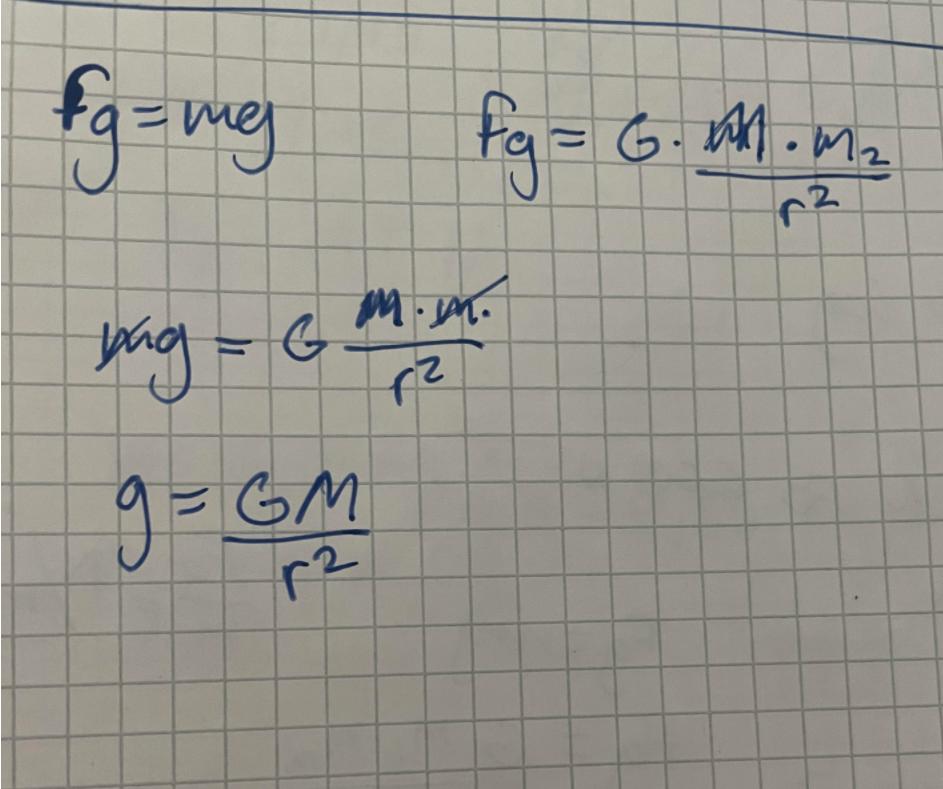 Fg = mg
Fg = G · M · m₂ / r²
mg = G m · m. / r²
g = GM / r²